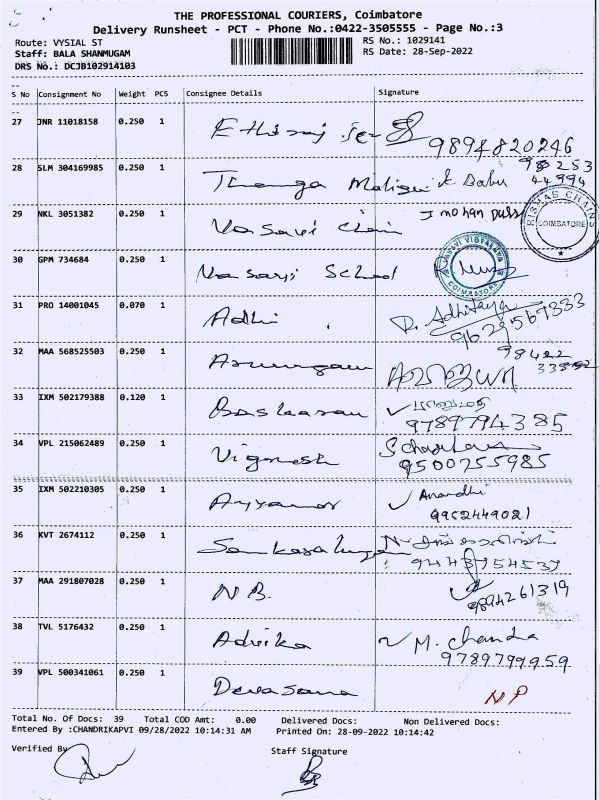 THE PROFESSIONAL COURIERS, Coimbatore
Delivery Runsheet - PCT - Phone No.:0422-3505555 - Page No.:3
Route: VYSIAL ST RS No.: 1029141
Staff: BALA SHANMUGAM RS Date: 28-Sep-2022
DRS No.: DCJB102914103
S No Consignment No Weight PCS Consignee Details Signature
27 JNR 11018158 0.250 1 Ethiraj
9894820246
28 SLM 304169985 0.250 1 Thanga Maligai K. Babu
98 253
44994
29 NKL 3051382 0.250 1 Vasavi Chain J mohan
COIMBATORE
30 GPM 734684 0.250 1 Vasavi School
VASAVI VIDYALAYA
COIMBATORE
31 PRO 14001045 0.070 1 Adhi R. Adhitaya
9629567333
32 MAA 568525503 0.250 1 Arumugam
98422
33 IXM 502179388 0.120 1 Baskaran
9789794385
34 VPL 215062489 0.250 1 Vignesh
9500755985
35 IXM 502210305 0.250 1 Ayyanar Anandhi
9952449021
36 KVT 2674112 0.250 1
9443754537
37 MAA 291807028 0.250 1 N B.
9894261319
38 TVL 5176432 0.250 1 Advika M. Chandra
9789799959
39 VPL 500341061 0.250 1 Devasana NP
Total No. Of Docs: 39 Total COD Amt: 0.00 Delivered Docs: Non Delivered Docs:
Entered By :CHANDRIKAPVI 09/28/2022 10:14:31 AM Printed On: 28-09-2022 10:14:42
Verified By Staff Signature